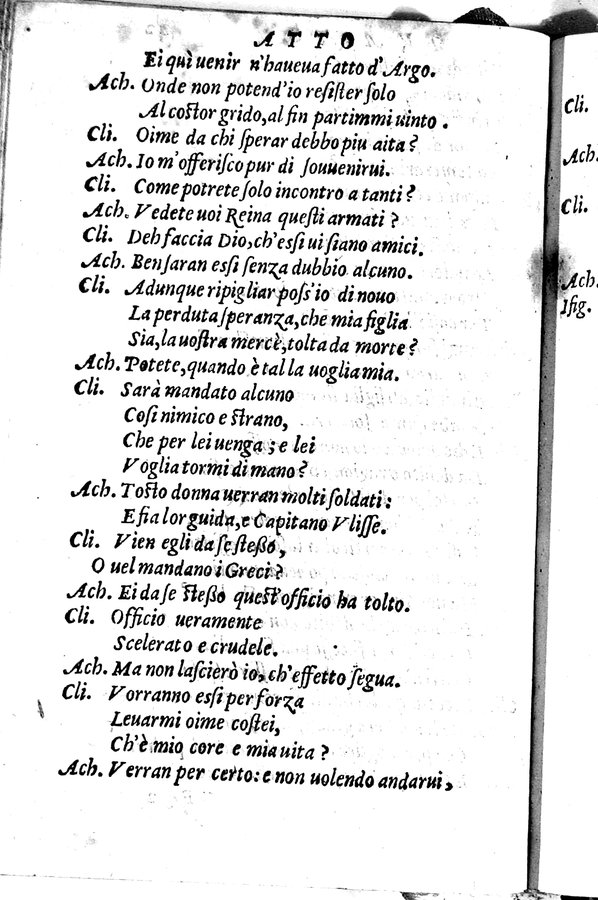 ATTO
Ei quì uenir n'haueua fatto d'Argo.
Ach. Onde non potend'io reſiſter ſolo
Al coſtor grido, al fin partimmi uinto.
Cli. Oime da chi ſperar debbo piu aita?
Ach. Io m'offeriſco pur di ſouuenirui.
Cli. Come potrete ſolo incontro a tanti?
Ach. Vedete uoi Reina queſti armati?
Cli. Deh faccia Dio, ch'eſſi ui ſiano amici.
Ach. Ben ſaran eſſi ſenza dubbio alcuno.
Cli. Adunque ripigliar poſs'io di nouo
La perduta ſperanza, che mia figlia
Sia, la uoſtra mercè, tolta da morte?
Ach. Potete, quando è tal la uoglia mia.
Cli. Sarà mandato alcuno
Coſi nimico e ſtrano,
Che per lei uenga; e lei
Voglia tormi di mano?
Ach. Toſto donna uerran molti ſoldati:
E fia lor guida, e Capitano Vliſſe.
Cli. Vien egli da ſe ſteßo,
O uel mandano i Greci?
Ach. Ei da ſe ſteßo queſt'officio ha tolto.
Cli. Officio ueramente
Scelerato e crudele.
Ach. Ma non laſcierò io, ch'effetto ſegua.
Cli. Vorranno eſſi per forza
Leuarmi oime coſtei,
Ch'è mio core e mia uita?
Ach. Verran per certo: e non uolendo andarui,
Cli.
Ach.
Cli.
Ach.
Ifig.